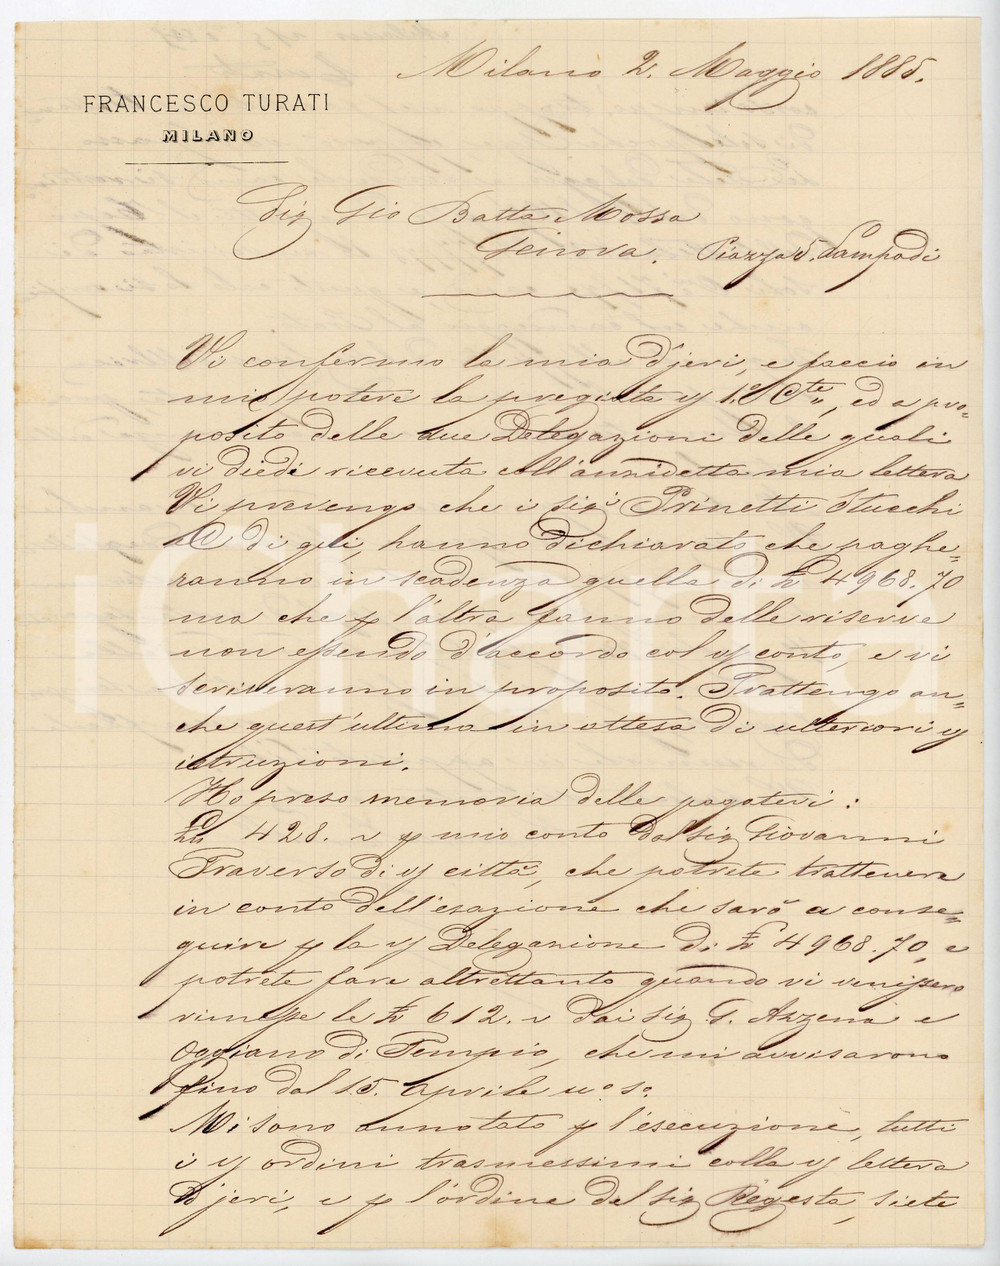 Milano 2. Maggio 1885.
FRANCESCO TURATI
MILANO
Sig Gio Batta Mossa
Genova. Piazza 5. Lampadi
Vi confermo la mia d'jeri, e faccio in
mio potere la pregiata v/ 1° Cte, ed a pro=
posito delle due Delegazioni delle quali
vi diedi ricevuta coll'anzidetta mia lettera
Vi prevengo che i sigi Prinetti Stucchi
& C di qui, hanno dichiarato che paghe=
ranno in scadenza quella di £ 4968.70
ma che p l'altra fanno delle riserve
non essendo d'accordo col v/ conto, e vi
scriveranno in proposito. Trattengo an=
che quest'ultima in attesa di ulteriori v/
istruzioni.
Ho preso memoria delle pagatevi:
£ 428. p mio conto dal Sig Giovanni
Traverso di v/ città, che potrete trattenere
in conto dell'esazione che sarò a conse=
guire p la v/ Delegazione di £ 4968.70, e
potrete fare altrettanto quando vi venissero
rimesse le £ 612. dai Sig G. Azzena e
Oggiano di Tempio, che mi avvisarono
fino dal 15. aprile u.° s.°
Mi sono annotato p l'esecuzione, tutti
i v/ ordini trasmessimi colla v/ lettera
D'jeri, e p l'ordine del sig Regesta, siete
iCharta